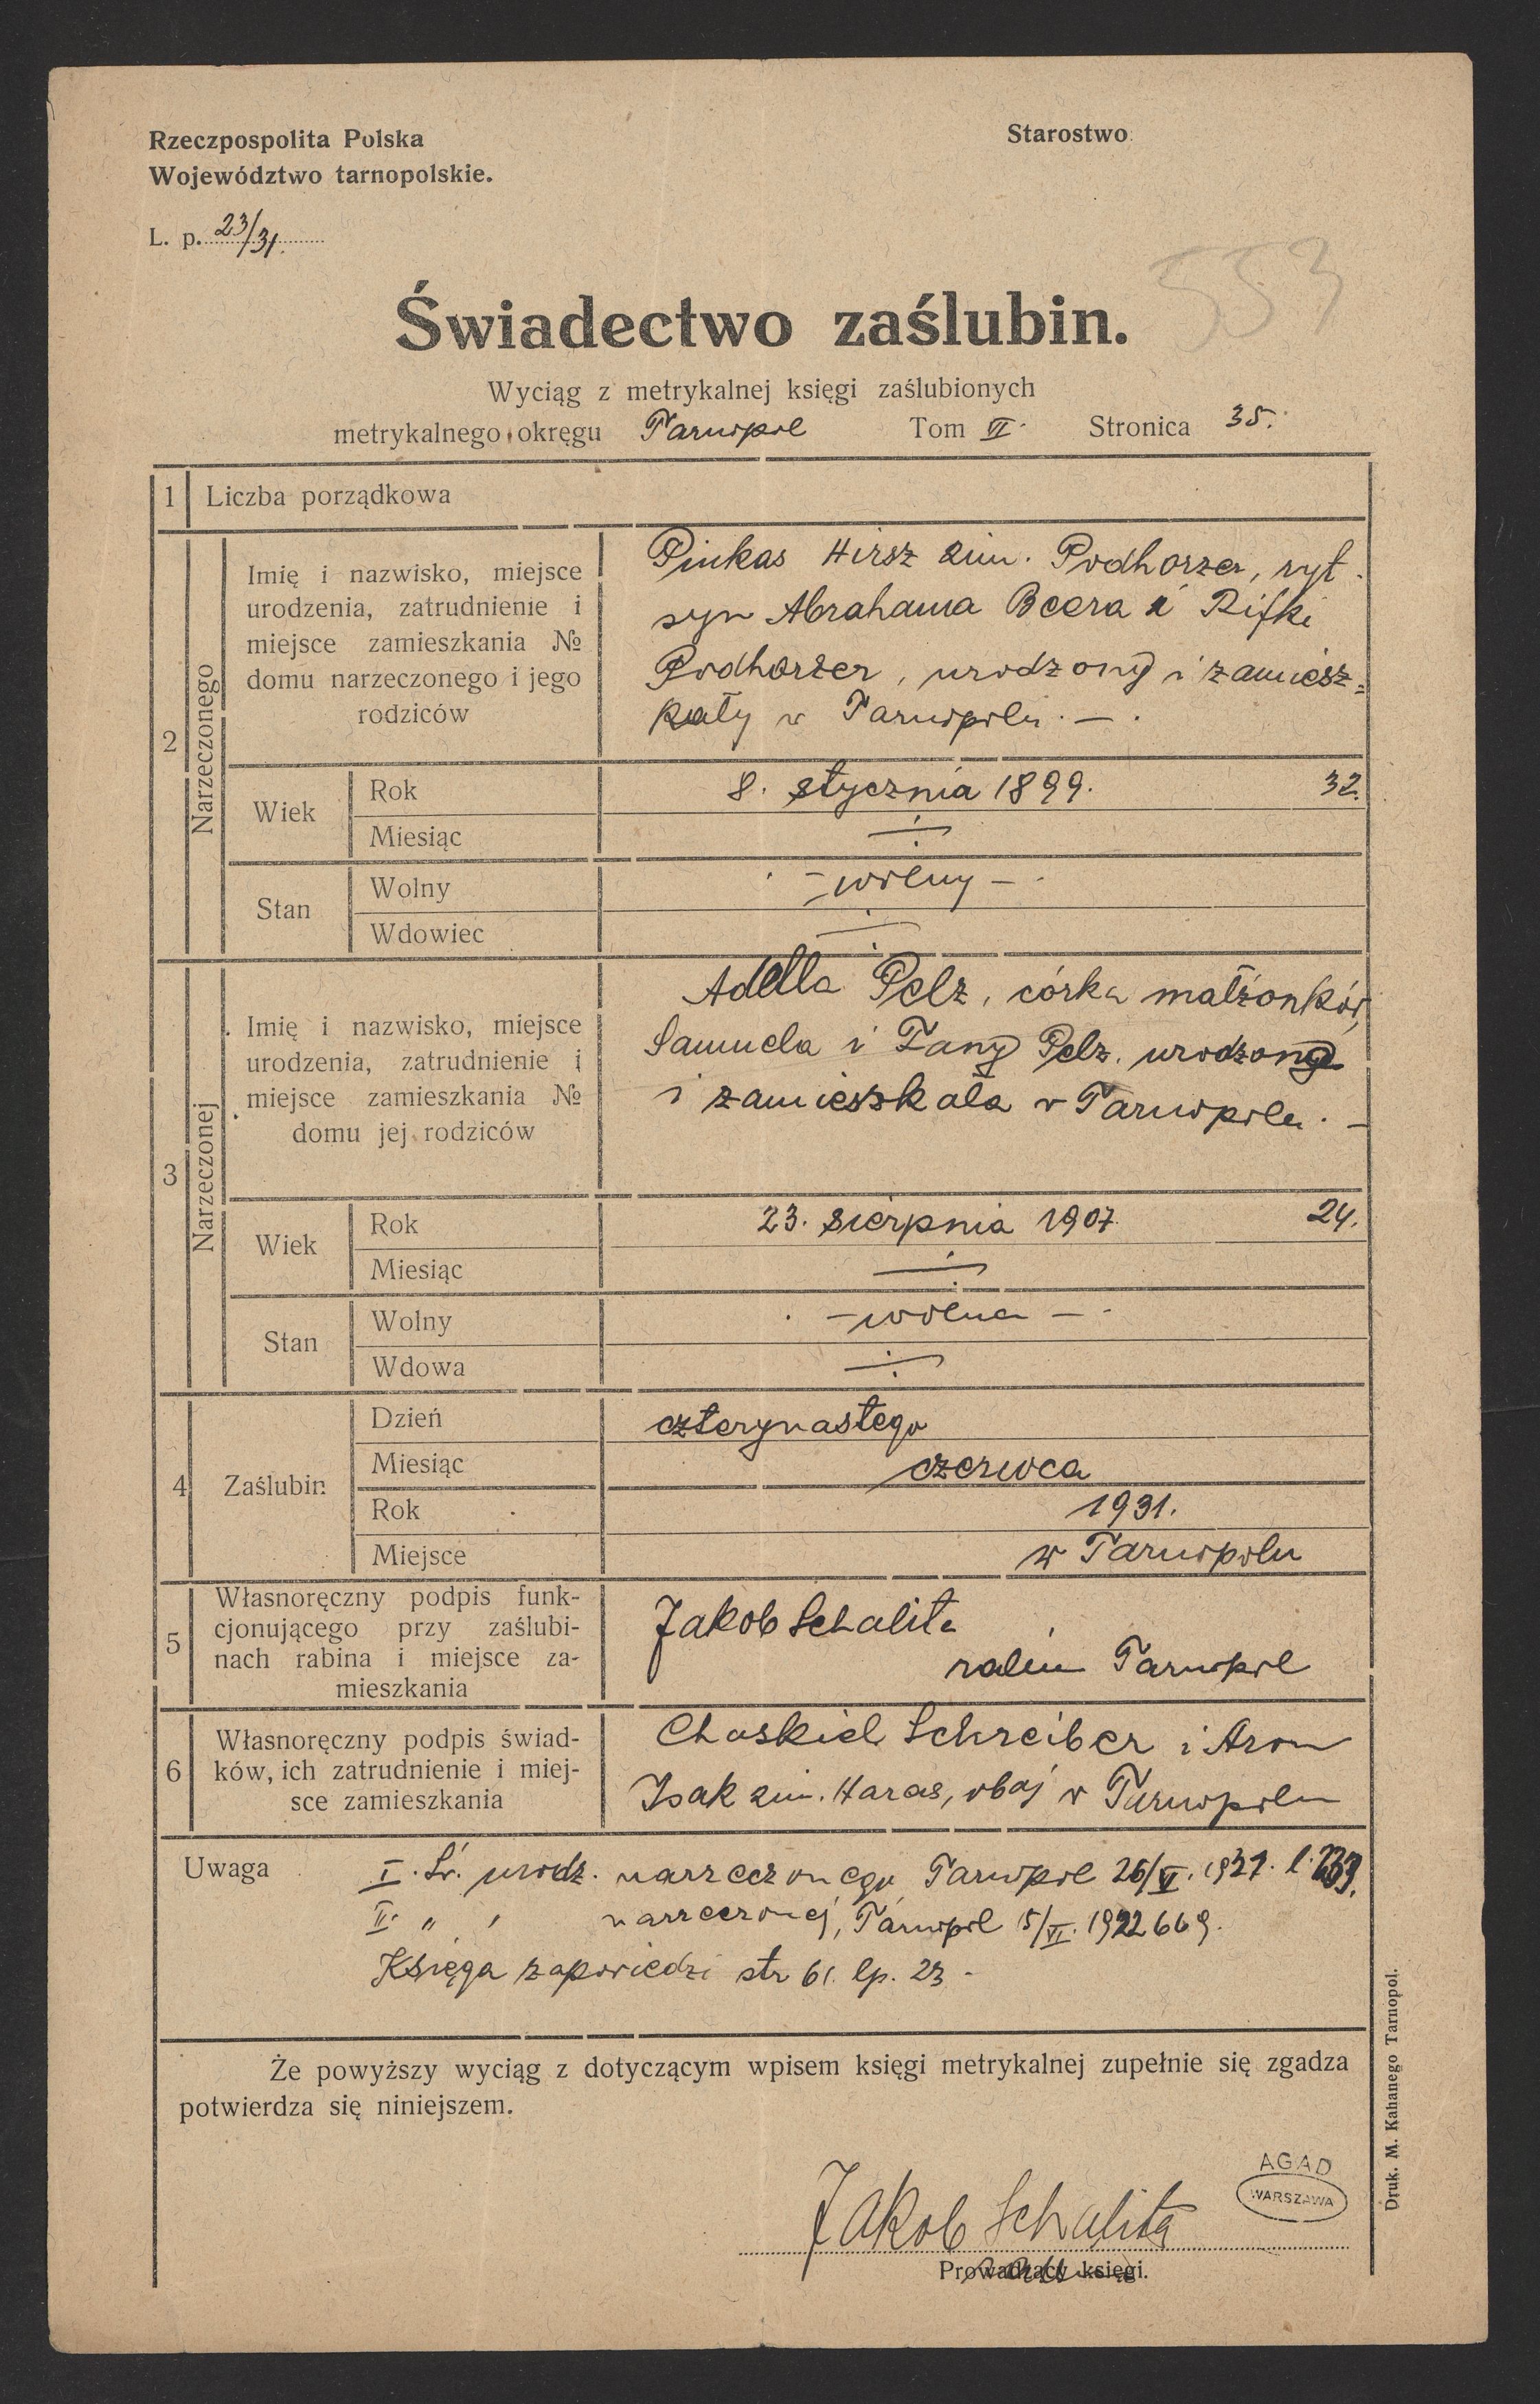 Rzeczpospolita Polska
Województwo tarnopolskie.
Starostwo
L. p. 23/31.
553
Świadectwo zaślubin.
Wyciąg z metrykalnej księgi zaślubionych
metrykalnego okręgu Tarnopol Tom VI. Stronica 35.
1 Liczba porządkowa
2 Narzeczonego
Imię i nazwisko, miejsce
urodzenia, zatrudnienie i
miejsce zamieszkania №
domu narzeczonego i jego
rodziców
Pinkas Hirsz 2im. Podhorzer, ryt.
syn Abrahama Beera i Rifki
Podhorzer, urodzony i zamiesz=
kały w Tarnopolu. — .
Wiek Rok 8. stycznia 1899. 32.
Miesiąc
Stan Wolny — wolny —
Wdowiec
3 Narzeczonej
Imię i nazwisko, miejsce
urodzenia, zatrudnienie i
miejsce zamieszkania №
domu jej rodziców
Adella Pelz, córka małżonków
Samuela i Fany Pelz, urodzona
i zamieszkała w Tarnopolu. —
Wiek Rok 23. sierpnia 1907. 24.
Miesiąc
Stan Wolny — wolna —
Wdowa
4 Zaślubin
Dzień czterynastego
Miesiąc czerwca
Rok 1931.
Miejsce w Tarnopolu
5 Własnoręczny podpis funk-
cjonującego przy zaślubi-
nach rabina i miejsce za-
mieszkania
Jakob Schalita
rabin Tarnopol
6 Własnoręczny podpis świad-
ków, ich zatrudnienie i miej-
sce zamieszkania
Chaskiel Schreiber i Aron
Isak 2im. Haras, obaj w Tarnopolu
Uwaga
I. Św. urodz. narzeczonego Tarnopol 26/V. 1931. l.
II. " " narzeczonej, Tarnopol 15/VI. 1922 669.
Księga zapowiedzi str 61. lp. 23 -
Że powyższy wyciąg z dotyczącym wpisem księgi metrykalnej zupełnie się zgadza
potwierdza się niniejszem.
AGAD
WARSZAWA
Jakob Schalita
Prowadzący księgi.
Druk. M. Kahanego Tarnopol.